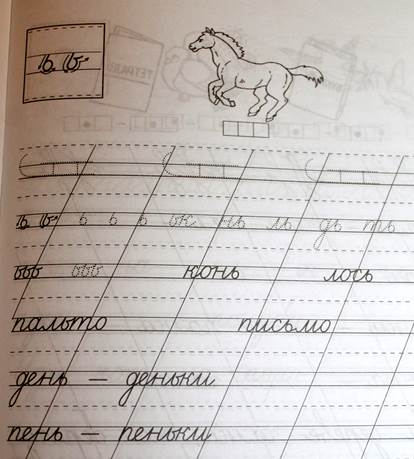 ь ь
ь ь ь ь ь ьк нь ль дь ть
ььь ььь конь лось
пальто письмо
день – деньки
пень – пеньки